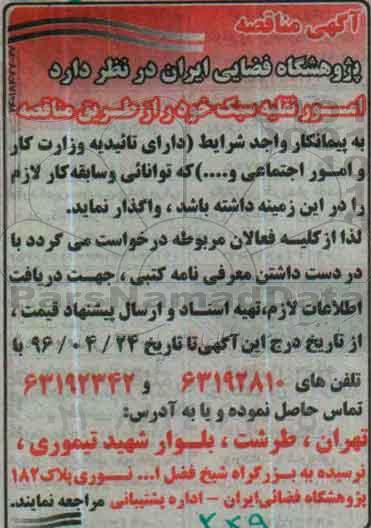 آگهی مناقصه
پژوهشگاه فضایی ایران در نظر دارد
امور نقلیه سبک خود را از طریق مناقصه
به پیمانکار واجد شرایط (دارای تائیدیه وزارت کار
و امور اجتماعی و....) که توانائی وسابقه کار لازم
را در این زمینه داشته باشد ، واگذار نماید.
لذا از کلیه فعالان مربوطه درخواست می گردد با
در دست داشتن معرفی نامه کتبی ، جهت دریافت
اطلاعات لازم، تهیه اسناد و ارسال پیشنهاد قیمت ،
از تاریخ درج این آگهی تا تاریخ ۹۶/۰۴/۲۴ با
تلفن های ۶۳۱۹۲۸۱۰ و ۶۳۱۹۲۳۴۲
تماس حاصل نموده و یا به آدرس:
تهران ، طرشت ، بلوار شهید تیموری ،
نرسیده به بزرگراه شیخ فضل ا... نوری پلاک ۱۸۲
پژوهشگاه فضائی ایران - اداره پشتیبانی مراجعه نمایند.
۲۲۹
ParsNamadData